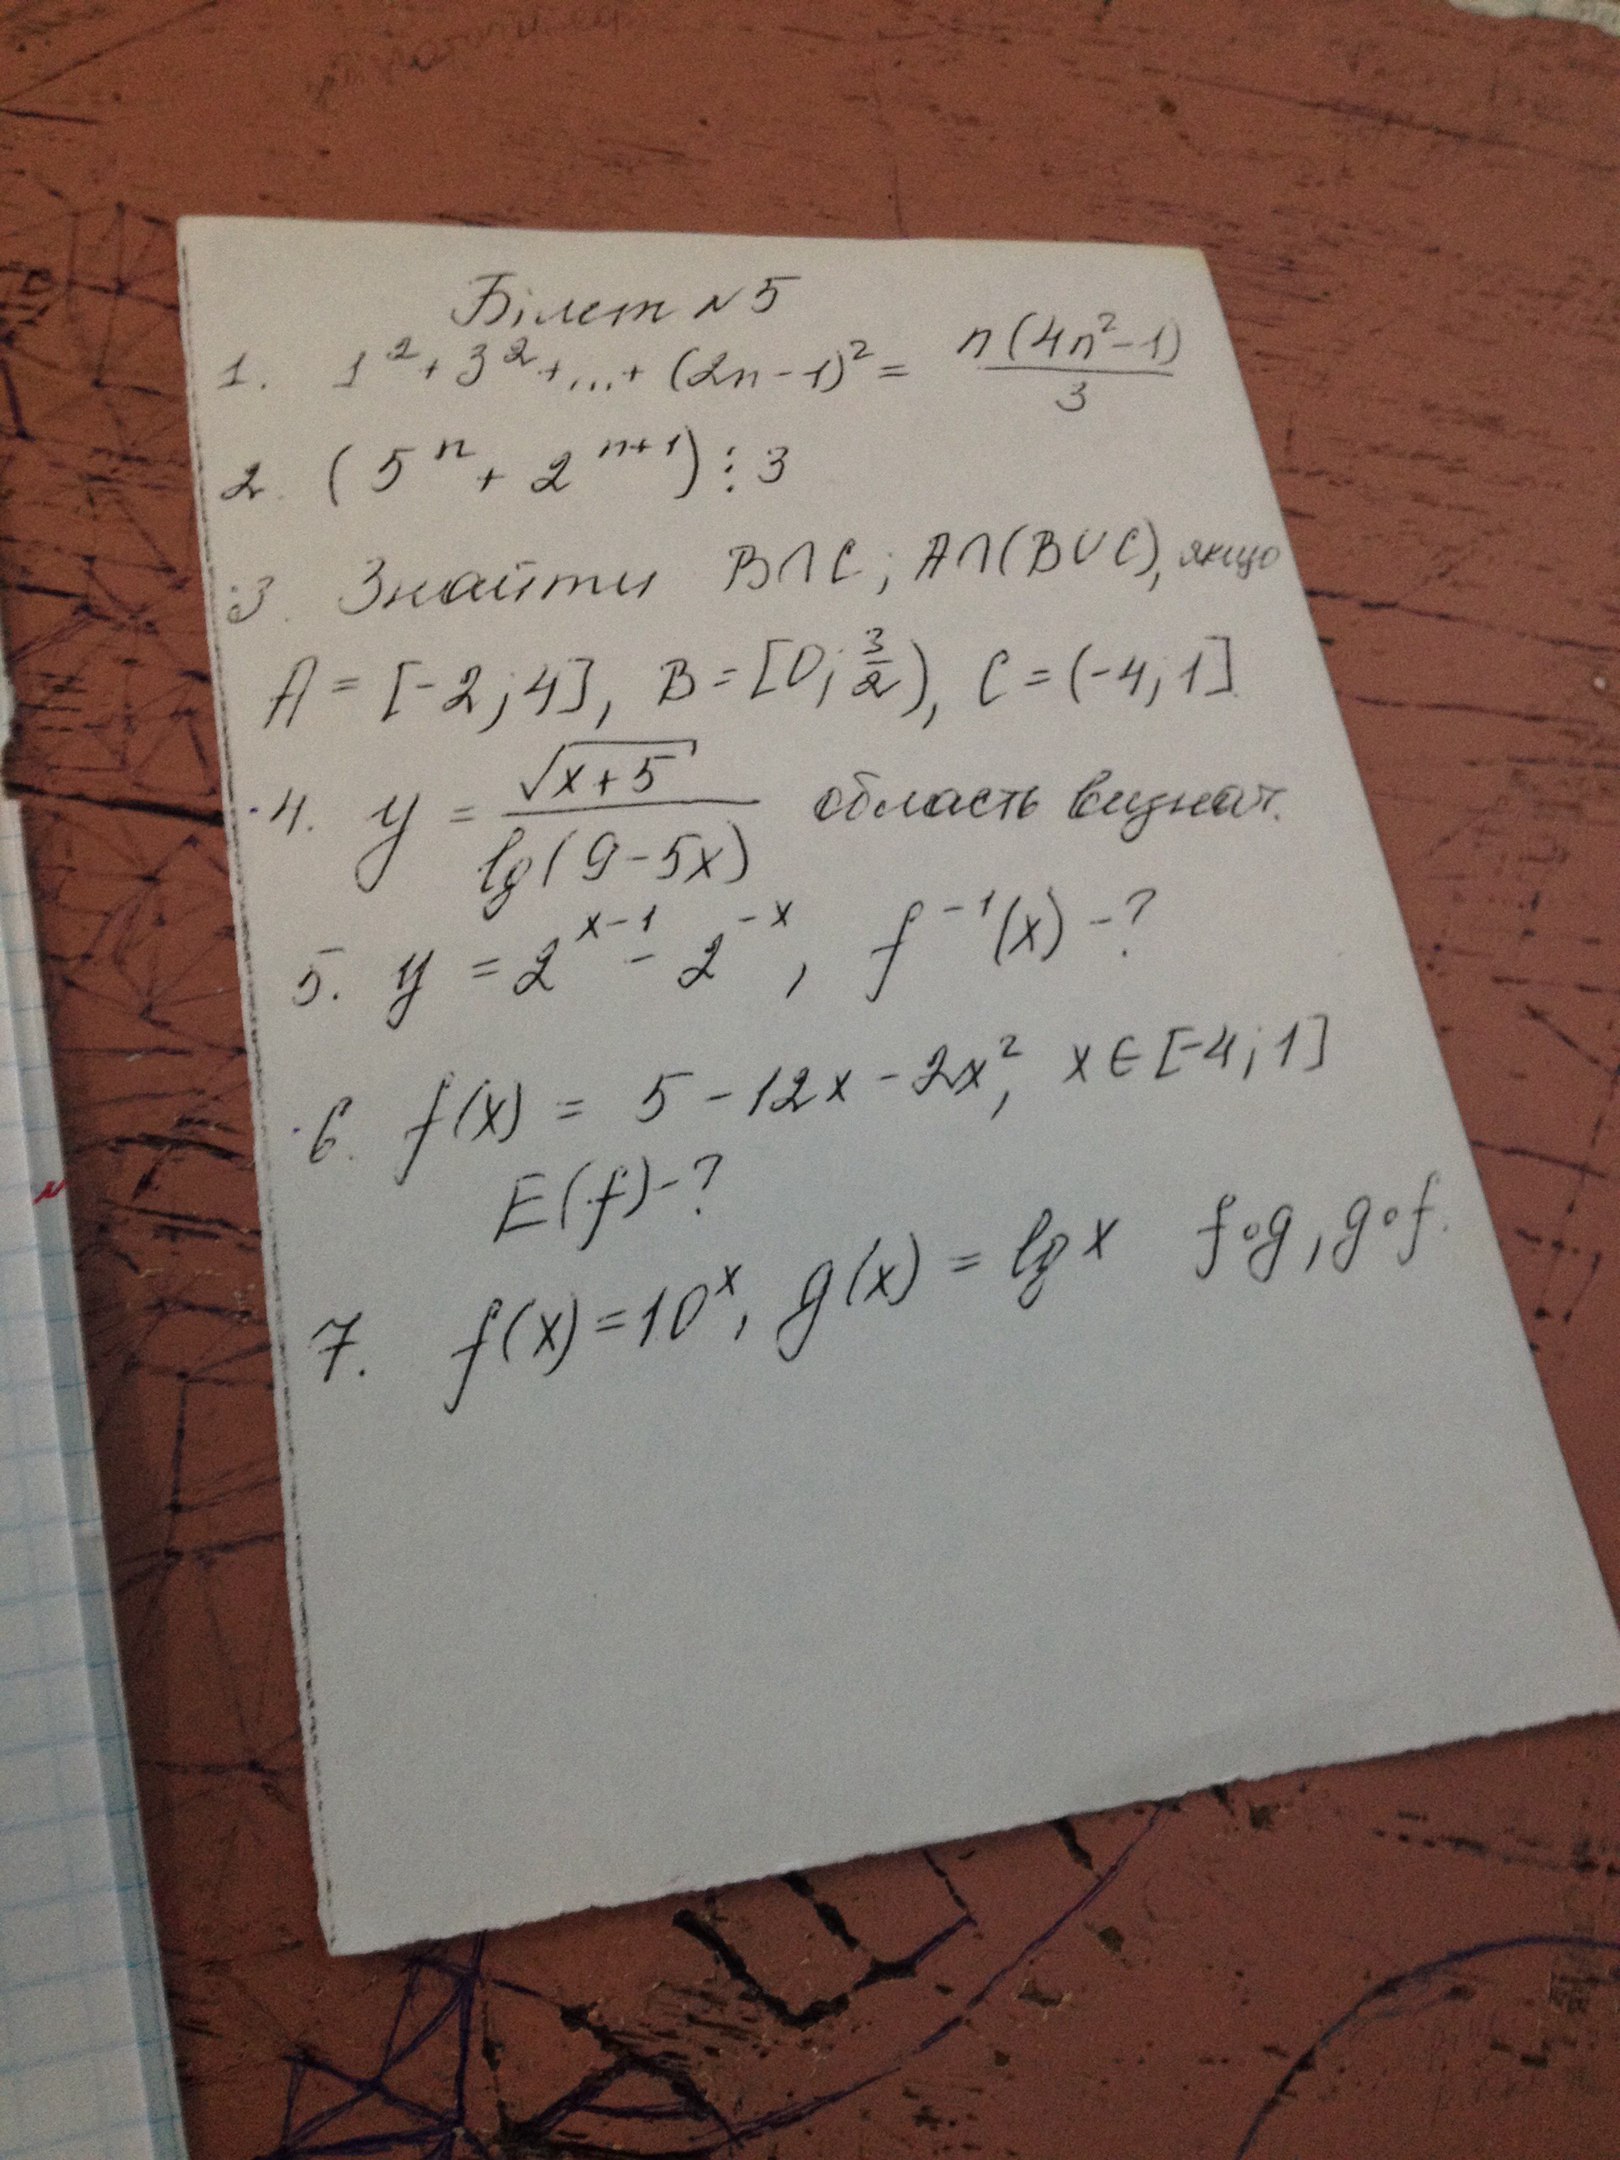 Білет №5
1. 1² + 3² + ... + (2n-1)² = n(4n²-1)/3
2. (5ⁿ + 2ⁿ⁺¹) ⋮ 3
3. Знайти B∩C; A∩(B∪C), якщо
A = [-2; 4], B = [0; 3/2), C = (-4; 1].
4. y = √(x+5) / lg(9-5x) область визнач.
5. y = 2ˣ⁻¹ - 2⁻ˣ, f⁻¹(x) - ?
6. f(x) = 5 - 12x - 2x², x ∈ [-4; 1]
E(f) - ?
7. f(x) = 10ˣ, g(x) = lg x f∘g, g∘f.